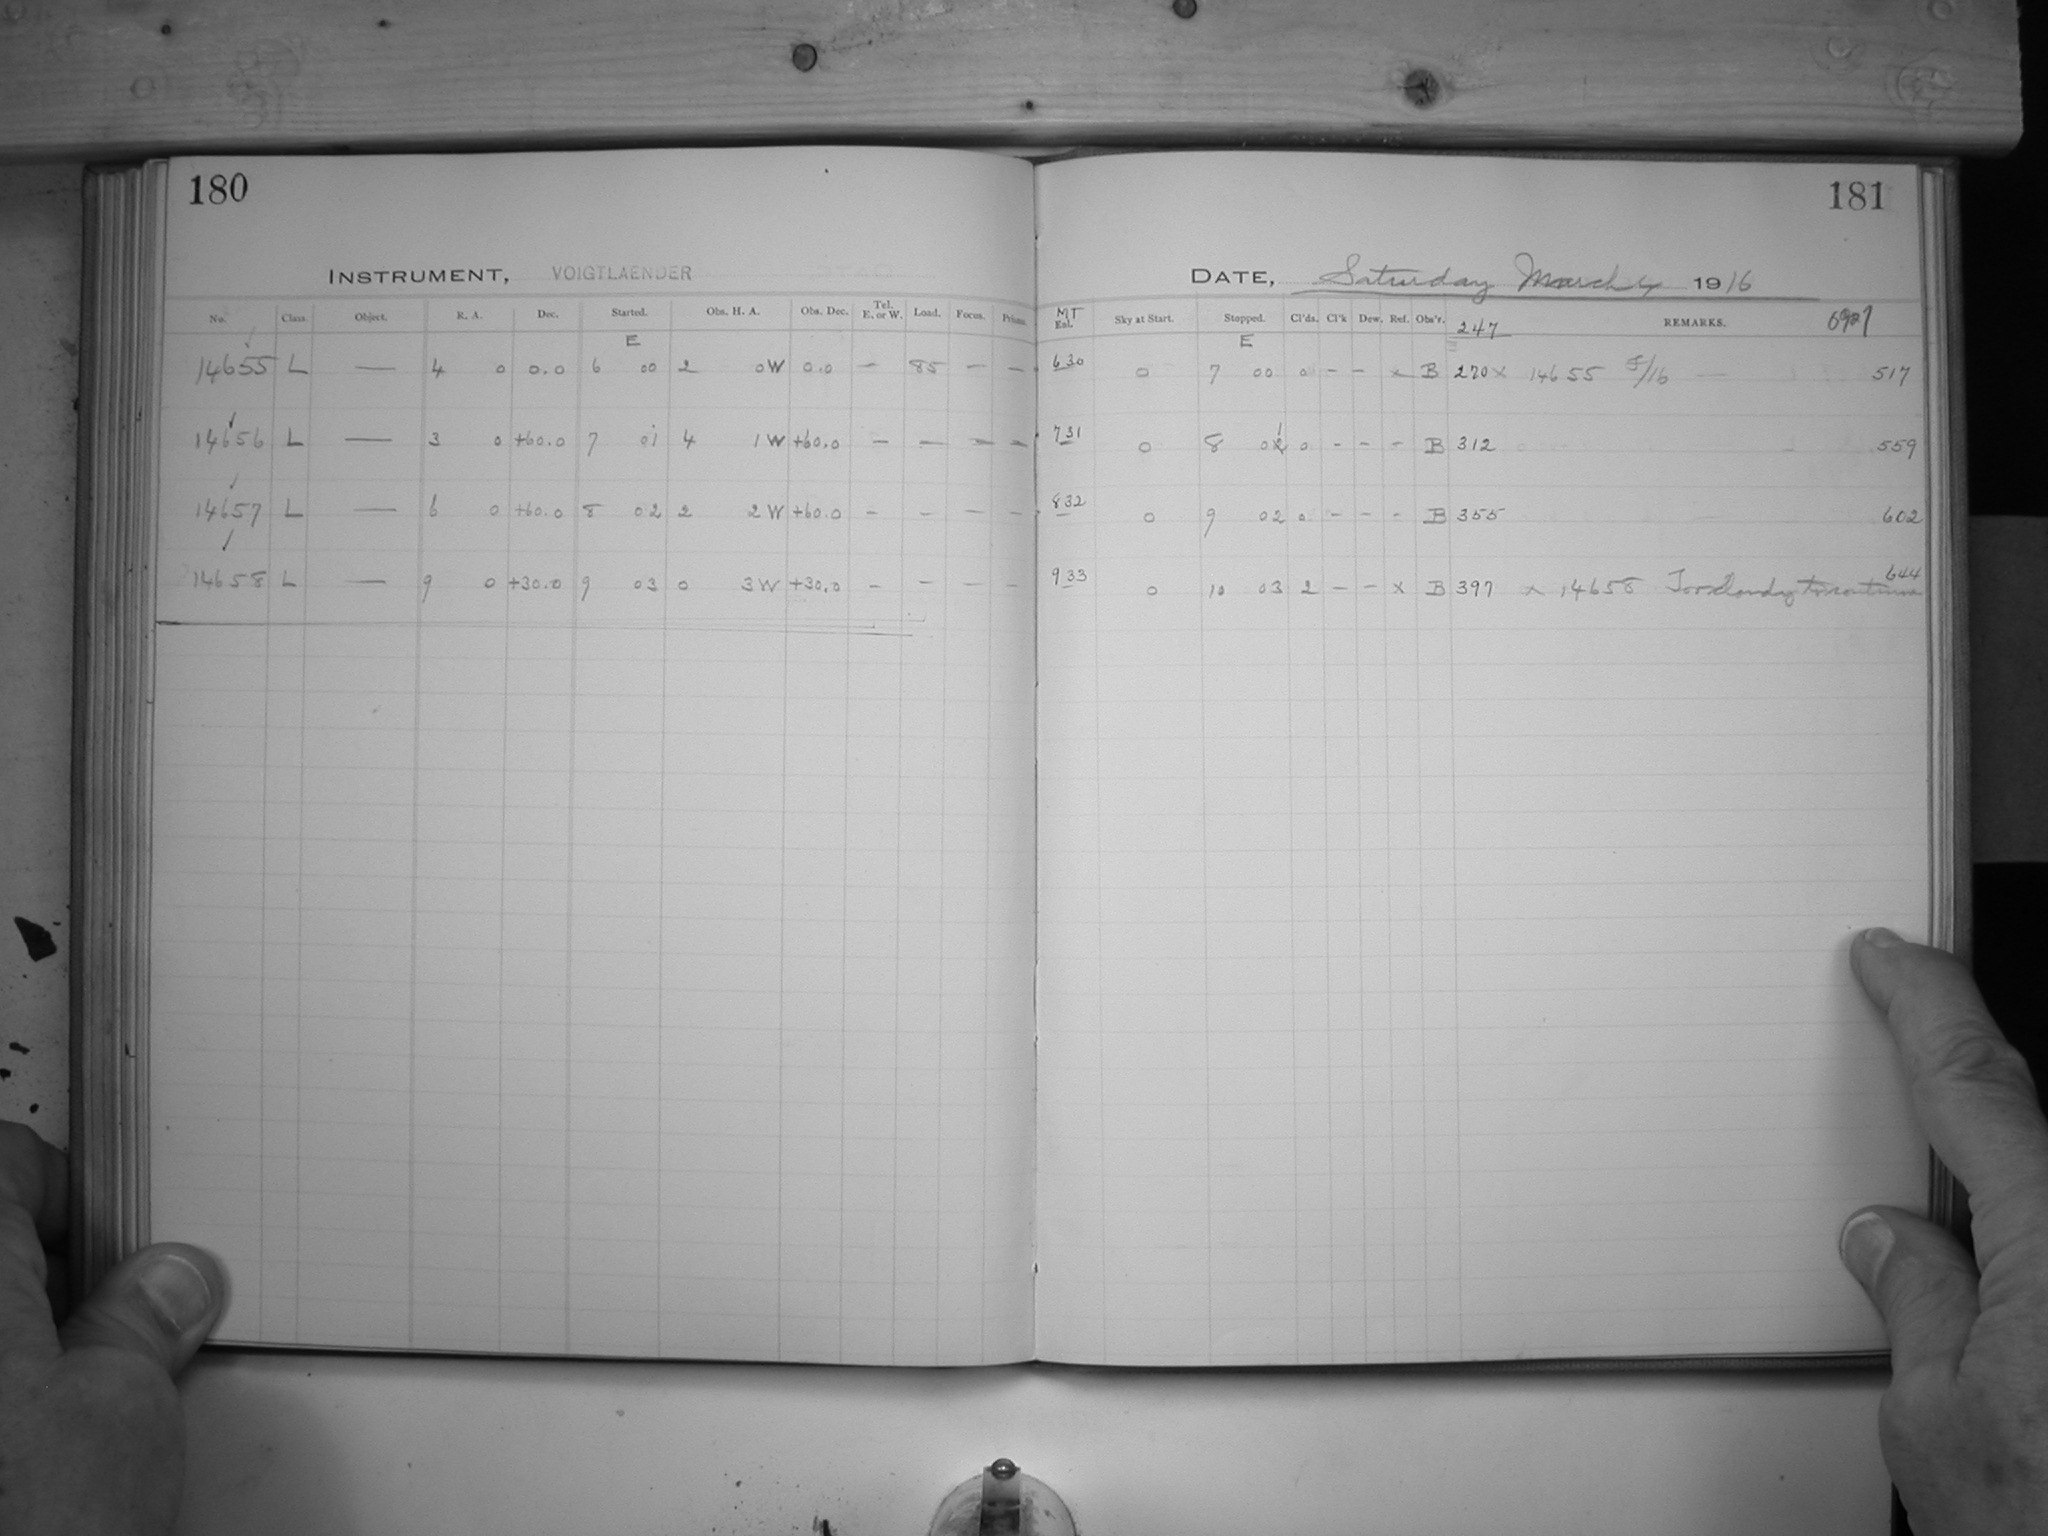 180
INSTRUMENT, VOIGTLAENDER
No. Class. Object. R. A. Dec. Started. Obs. H. A. Obs. Dec. Tel. E. or W. Load. Focus. Prism.
E
14655 L — 4 0 0.0 6 00 2 0W 0.0 — 85 — —
14656 L — 3 0 +60.0 7 01 4 1W +60.0 — — — —
14657 L — 6 0 +60.0 8 02 2 2W +60.0 — — — —
14658 L — 9 0 +30.0 9 03 0 3W +30.0 — — — —
181
DATE, Saturday March 4 1916
MT
Ent. Sky at Start. Stopped. Cl'ds. Cl'k Dew. Ref. Obs'r. 247 REMARKS. 6921
E
630 0 7 00 0 - - x B 270 x 14655 5/16 — 517
731 0 8 01 0 - - - B 312 559
832 0 9 02 0 - - - B 355 602
933 0 10 03 2 - - x B 397 x 14658 Too cloudy to continue 644